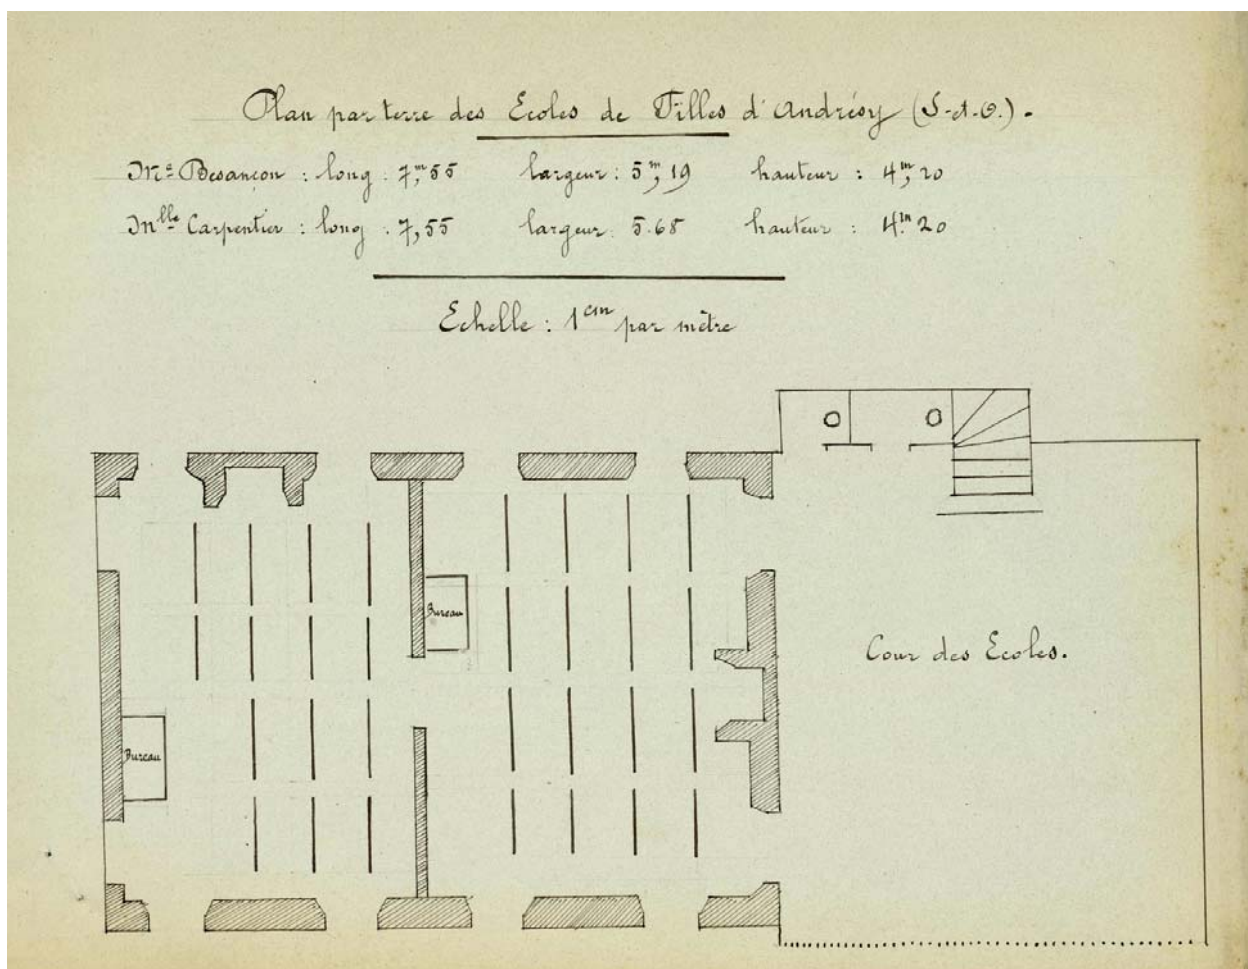 Plan par terre des Ecoles de Filles d'Andrésy (S-et-O.).
Mᵉ Besançon : long : 7,ᵐ55 largeur : 5,ᵐ19 hauteur : 4,ᵐ20
Mˡˡᵉ Carpentier : long : 7,55 largeur : 5.68 hauteur : 4.ᵐ20
Echelle : 1ᶜᵐ par mètre
Bureau
Cour des Ecoles.
Bureau